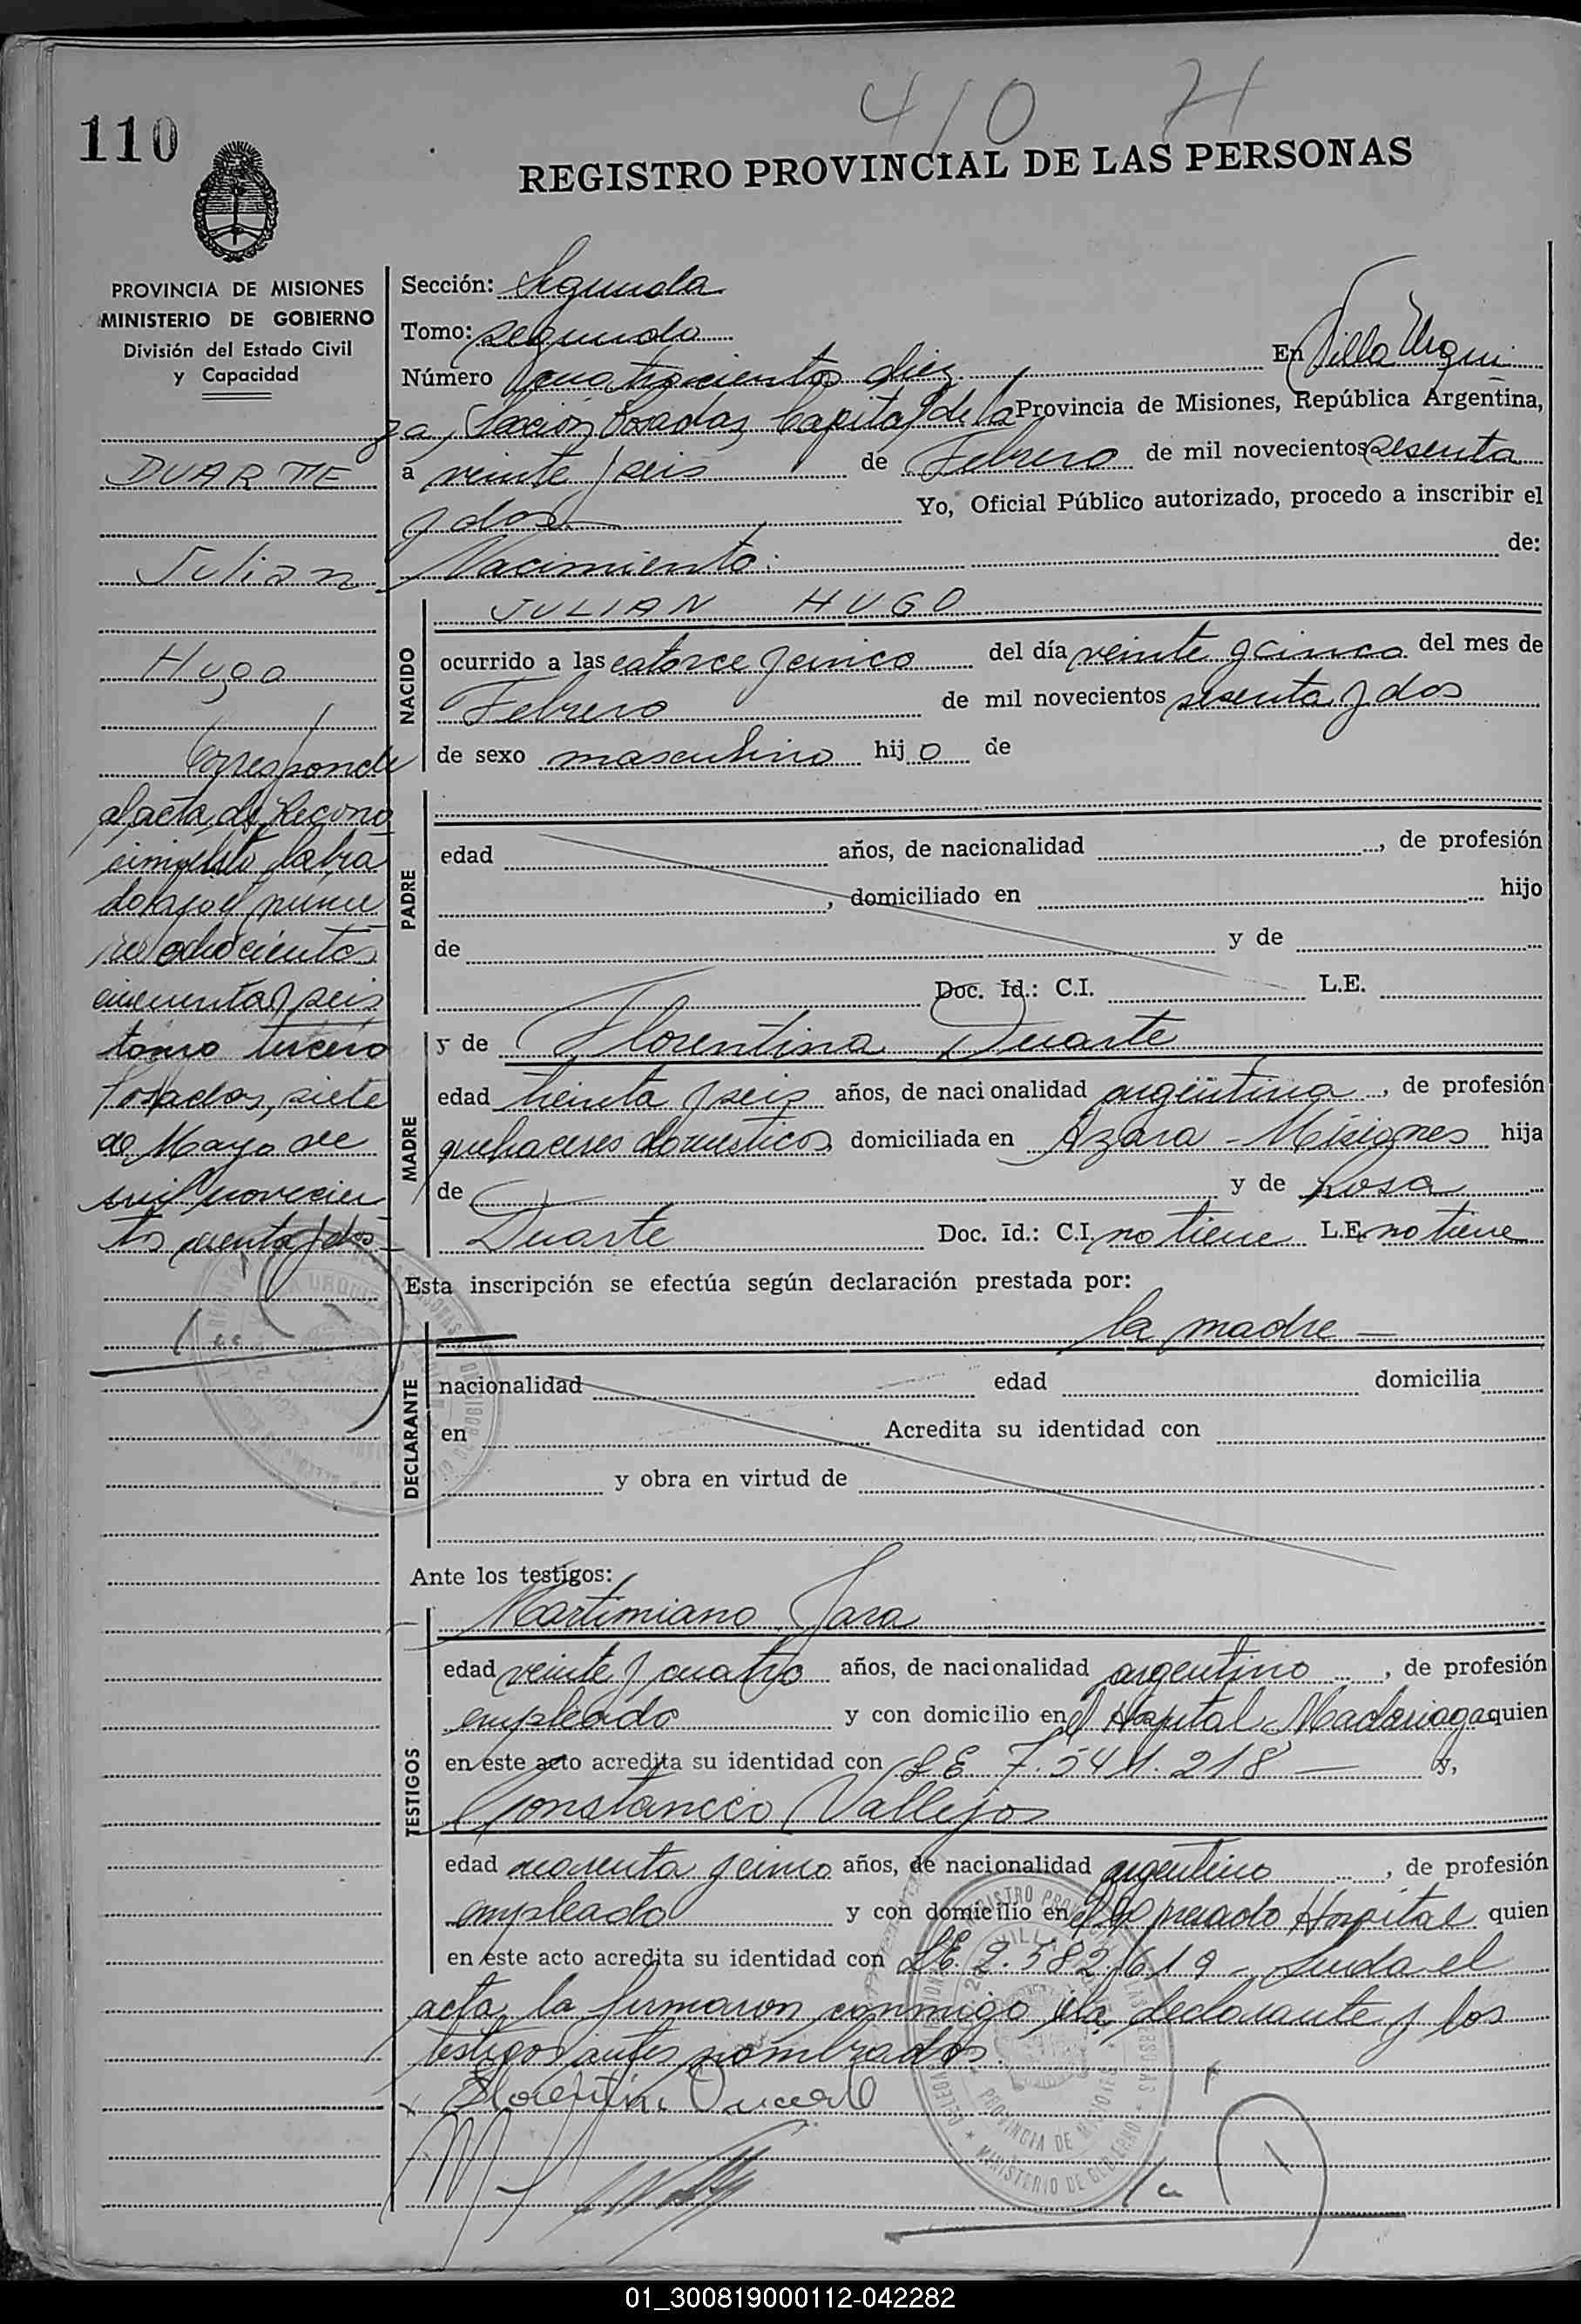 410
110
REGISTRO PROVINCIAL DE LAS PERSONAS
PROVINCIA DE MISIONES
MINISTERIO DE GOBIERNO
División del Estado Civil
y Capacidad
DUARTE
Julian
Hugo
Corresponde
al acta de Recono
cimiento labra
do bajo el núme
ro ochocientos
cincuenta y seis
tomo tercero
Posadas, siete
de Mayo de
mil novecien
tos sesenta y dos
Sección: Segunda
Tomo: segundo
Número cuatrocientos diez En Villa Urqui
za, Sección Posadas, Capital de la Provincia de Misiones, República Argentina,
a veinte y seis de Febrero de mil novecientos sesenta
y dos Yo, Oficial Público autorizado, procedo a inscribir el
Nacimiento: de:
NACIDO
JULIAN HUGO
ocurrido a las catorce y cinco del día veinte y cinco del mes de
Febrero de mil novecientos sesenta y dos
de sexo masculino hij o de
PADRE
edad años, de nacionalidad , de profesión
, domiciliado en hijo
de y de
Doc. Id.: C.I. L.E.
MADRE
y de Florentina Duarte
edad treinta y seis años, de nacionalidad argentina , de profesión
quehaceres domesticos domiciliada en Azara - Misiones hija
de y de Rosa
Duarte Doc. Id.: C.I. no tiene L.E. no tiene
Esta inscripción se efectúa según declaración prestada por:
la madre
DECLARANTE
nacionalidad edad domicilia
en Acredita su identidad con
y obra en virtud de
Ante los testigos:
TESTIGOS
Martimiano Jara
edad veinte y cuatro años, de nacionalidad argentino , de profesión
empleado y con domicilio en el Hospital Madariaga quien
en este acto acredita su identidad con L E 7.541.218 y,
Constancio Vallejos
edad cuarenta y cinco años, de nacionalidad argentino , de profesión
empleado y con domicilio en el expresado Hospital quien
en este acto acredita su identidad con L.E. 2.582.619 - Leida el
acta, la firmaron conmigo, la declarante y los
testigos antes nombrados.
Florentina Duarte
PROVINCIA DE MISIONES
MINISTERIO DE GOBIERNO
01_300819000112-042282